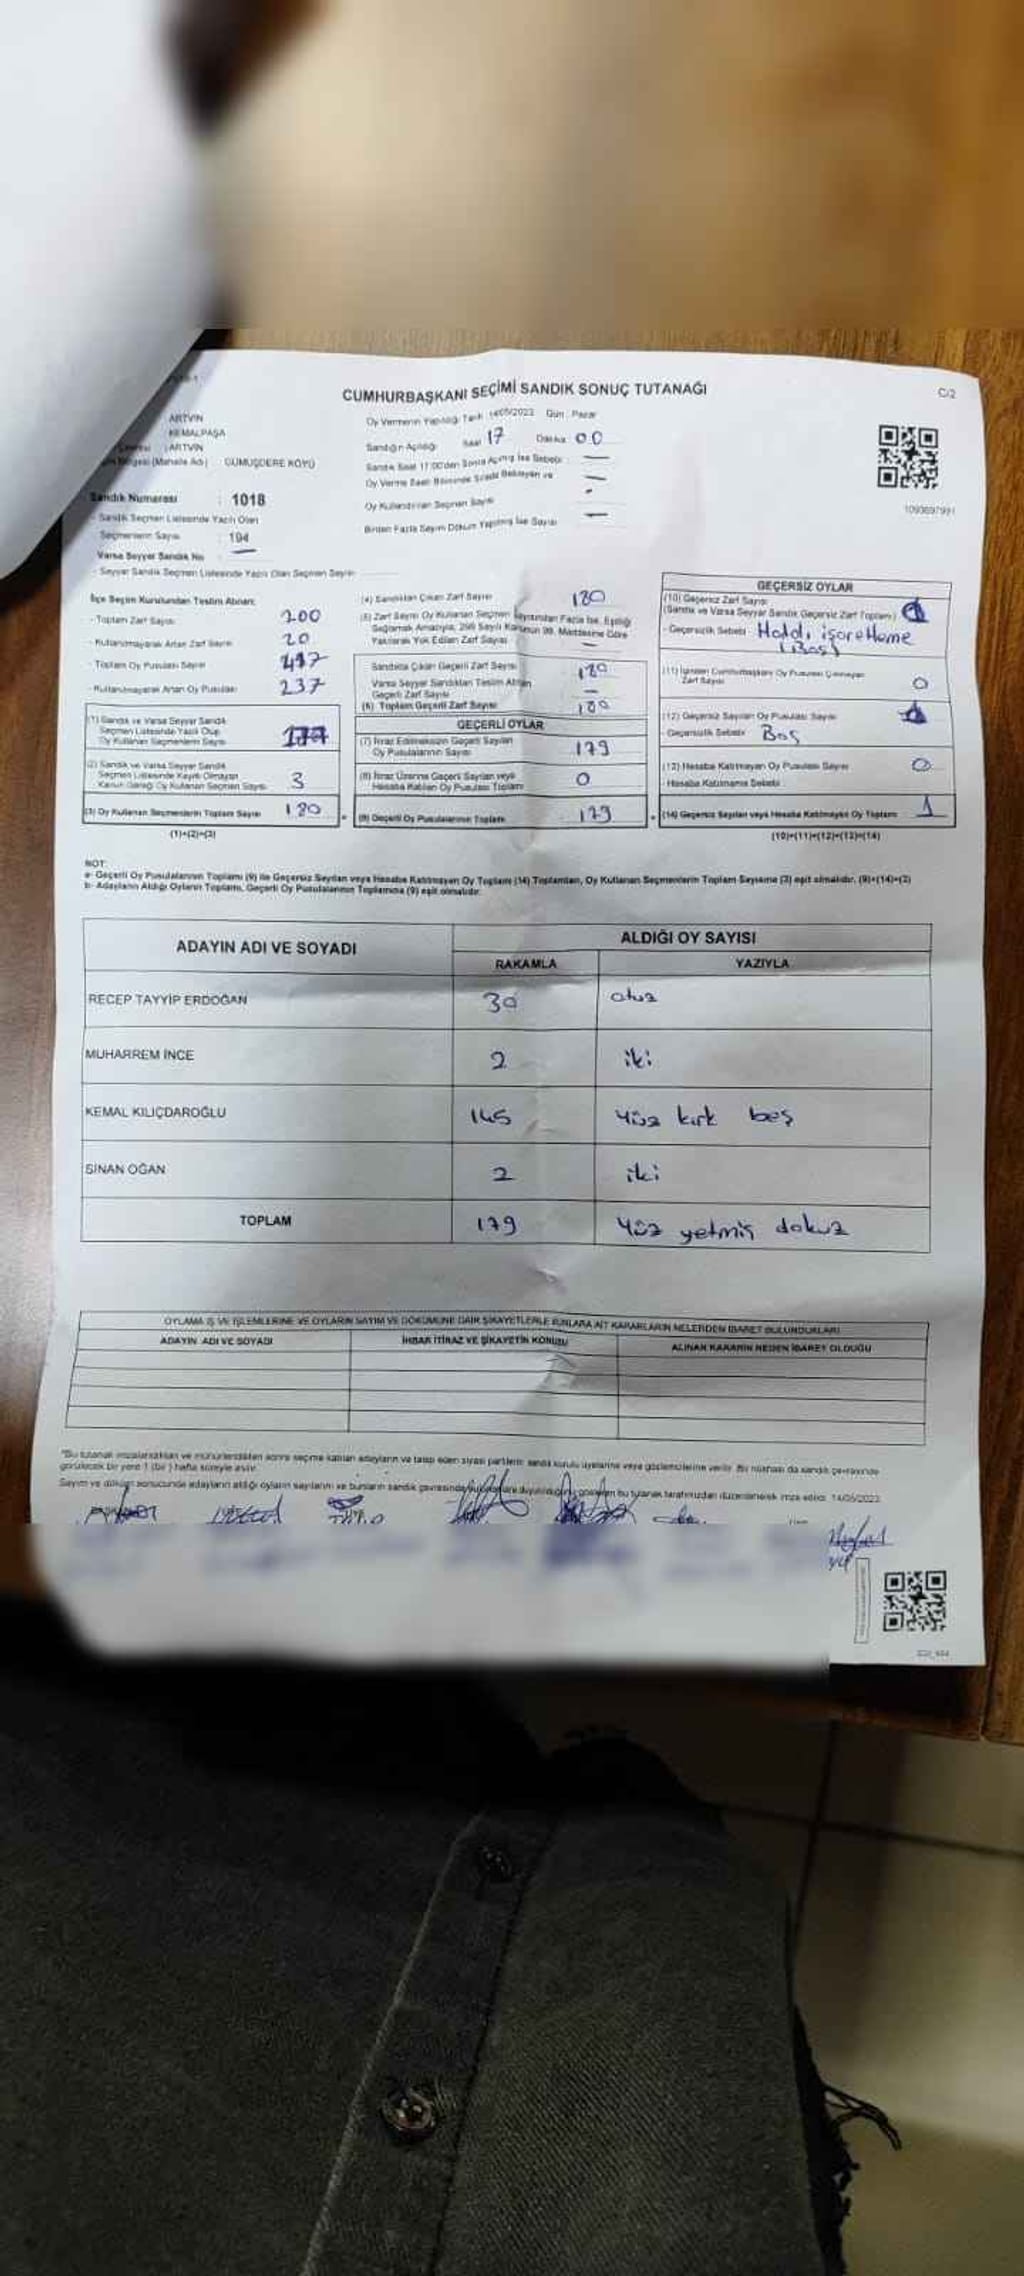 CUMHURBAŞKANI SEÇİMİ SANDIK SONUÇ TUTANAĞI
C/2
ARTVİN
KEMALPAŞA
: ARTVİN
(Mahalle Adı) GÜMÜŞDERE KÖYÜ
Sandık Numarası : 1018
- Sandık Seçmen Listesinde Yazılı Olan
Seçmenlerin Sayısı : 194
Varsa Seyyar Sandık No —
- Seyyar Sandık Seçmen Listesinde Yazılı Olan Seçmen Sayısı
Oy Vermenin Yapıldığı Tarih 14/05/2023 Gün : Pazar
Sandığın Açıldığı Saat 17 Dakika 00
Sandık Saat 17:00'den Sonra Açılmış İse Sebebi —
Oy Kullandırılan Seçmen Sayısı
Birden Fazla Sayım Döküm Yapılmış İse Sayısı —
1093697991
İlçe Seçim Kurulundan Teslim Alınan:
- Toplam Zarf Sayısı 200
- Kullanılmayarak Artan Zarf Sayısı 20
- Toplam Oy Pusulası Sayısı
- Kullanılmayarak Artan Oy Pusulası 237
(1) Sandık ve Varsa Seyyar Sandık
Seçmen Listesinde Yazılı Olup
Oy Kullanan Seçmenlerin Sayısı 177
(2) Sandık ve Varsa Seyyar Sandık
Seçmen Listesinde Kayıtlı Olmayan
Kanun Gereği Oy Kullanan Seçmen Sayısı 3
(3) Oy Kullanan Seçmenlerin Toplam Sayısı 180
(1)+(2)=(3)
(4) Sandıktan Çıkan Zarf Sayısı 180
(5) Zarf Sayısı Oy Kullanan Seçmen Sayısından Fazla İse, Eşitliği
Sağlamak Amacıyla, 298 Sayılı Kanunun 98. Maddesine Göre
Yakılarak Yok Edilen Zarf Sayısı —
Sandıkta Çıkan Geçerli Zarf Sayısı 180
Varsa Seyyar Sandıktan Teslim Alınan
Geçerli Zarf Sayısı —
(6) Toplam Geçerli Zarf Sayısı 180
GEÇERLİ OYLAR
(7) İtiraz Edilmeksizin Geçerli Sayılan
Oy Pusulalarının Sayısı 179
(8) İtiraz Üzerine Geçerli Sayılan veya
Hesaba Katılan Oy Pusulası Toplamı 0
(9) Geçerli Oy Pusulalarının Toplamı 179
GEÇERSİZ OYLAR
(10) Geçersiz Zarf Sayısı
(Sandık ve Varsa Seyyar Sandık Geçersiz Zarf Toplamı)
- Geçersizlik Sebebi Hatalı işaretleme
(Boş)
(11) İçinden Cumhurbaşkanı Oy Pusulası Çıkmayan
Zarf Sayısı 0
(12) Geçersiz Sayılan Oy Pusulası Sayısı
- Geçersizlik Sebebi Boş
(13) Hesaba Katılmayan Oy Pusulası Sayısı 0
- Hesaba Katılmama Sebebi
(14) Geçersiz Sayılan veya Hesaba Katılmayan Oy Toplamı 1
(10)+(11)+(12)+(13)=(14)
NOT:
a- Geçerli Oy Pusulalarının Toplamı (9) ile Geçersiz Sayılan veya Hesaba Katılmayan Oy Toplamı (14) Toplamları, Oy Kullanan Seçmenlerin Toplam Sayısına (3) eşit olmalıdır. (9)+(14)=(3)
b- Adayların Aldığı Oyların Toplamı, Geçerli Oy Pusulalarının Toplamına (9) eşit olmalıdır.
ADAYIN ADI VE SOYADI
ALDIĞI OY SAYISI
RAKAMLA YAZIYLA
RECEP TAYYİP ERDOĞAN 30 otuz
MUHARREM İNCE 2 iki
KEMAL KILIÇDAROĞLU 145 Yüz kırk beş
SİNAN OĞAN 2 iki
TOPLAM 179 Yüz yetmiş dokuz
OYLAMA İŞ VE İŞLEMLERİNE VE OYLARIN SAYIM VE DÖKÜMÜNE DAİR ŞİKAYETLERLE BUNLARA AİT KARARLARIN NELERDEN İBARET BULUNDUKLARI
ADAYIN ADI VE SOYADI İHBAR İTİRAZ VE ŞİKAYETİN KONUSU ALINAN KARARIN NEDEN İBARET OLDUĞU
"Bu tutanak imzalandıktan ve mühürlendikten sonra seçime katılan adayların ve talep eden siyasi partilerin sandık kurulu üyelerine veya gözlemcilerine verilir. Bu nüshası da sandık çevresinde
görülecek bir yere 1 (bir) hafta süreyle asılır.
Sayım ve döküm sonucunda adayların aldığı oyların sayılarını ve bunların sandık çevresinde gösteren bu tutanak tarafımızdan düzenlenerek imza edildi. 14/05/2023